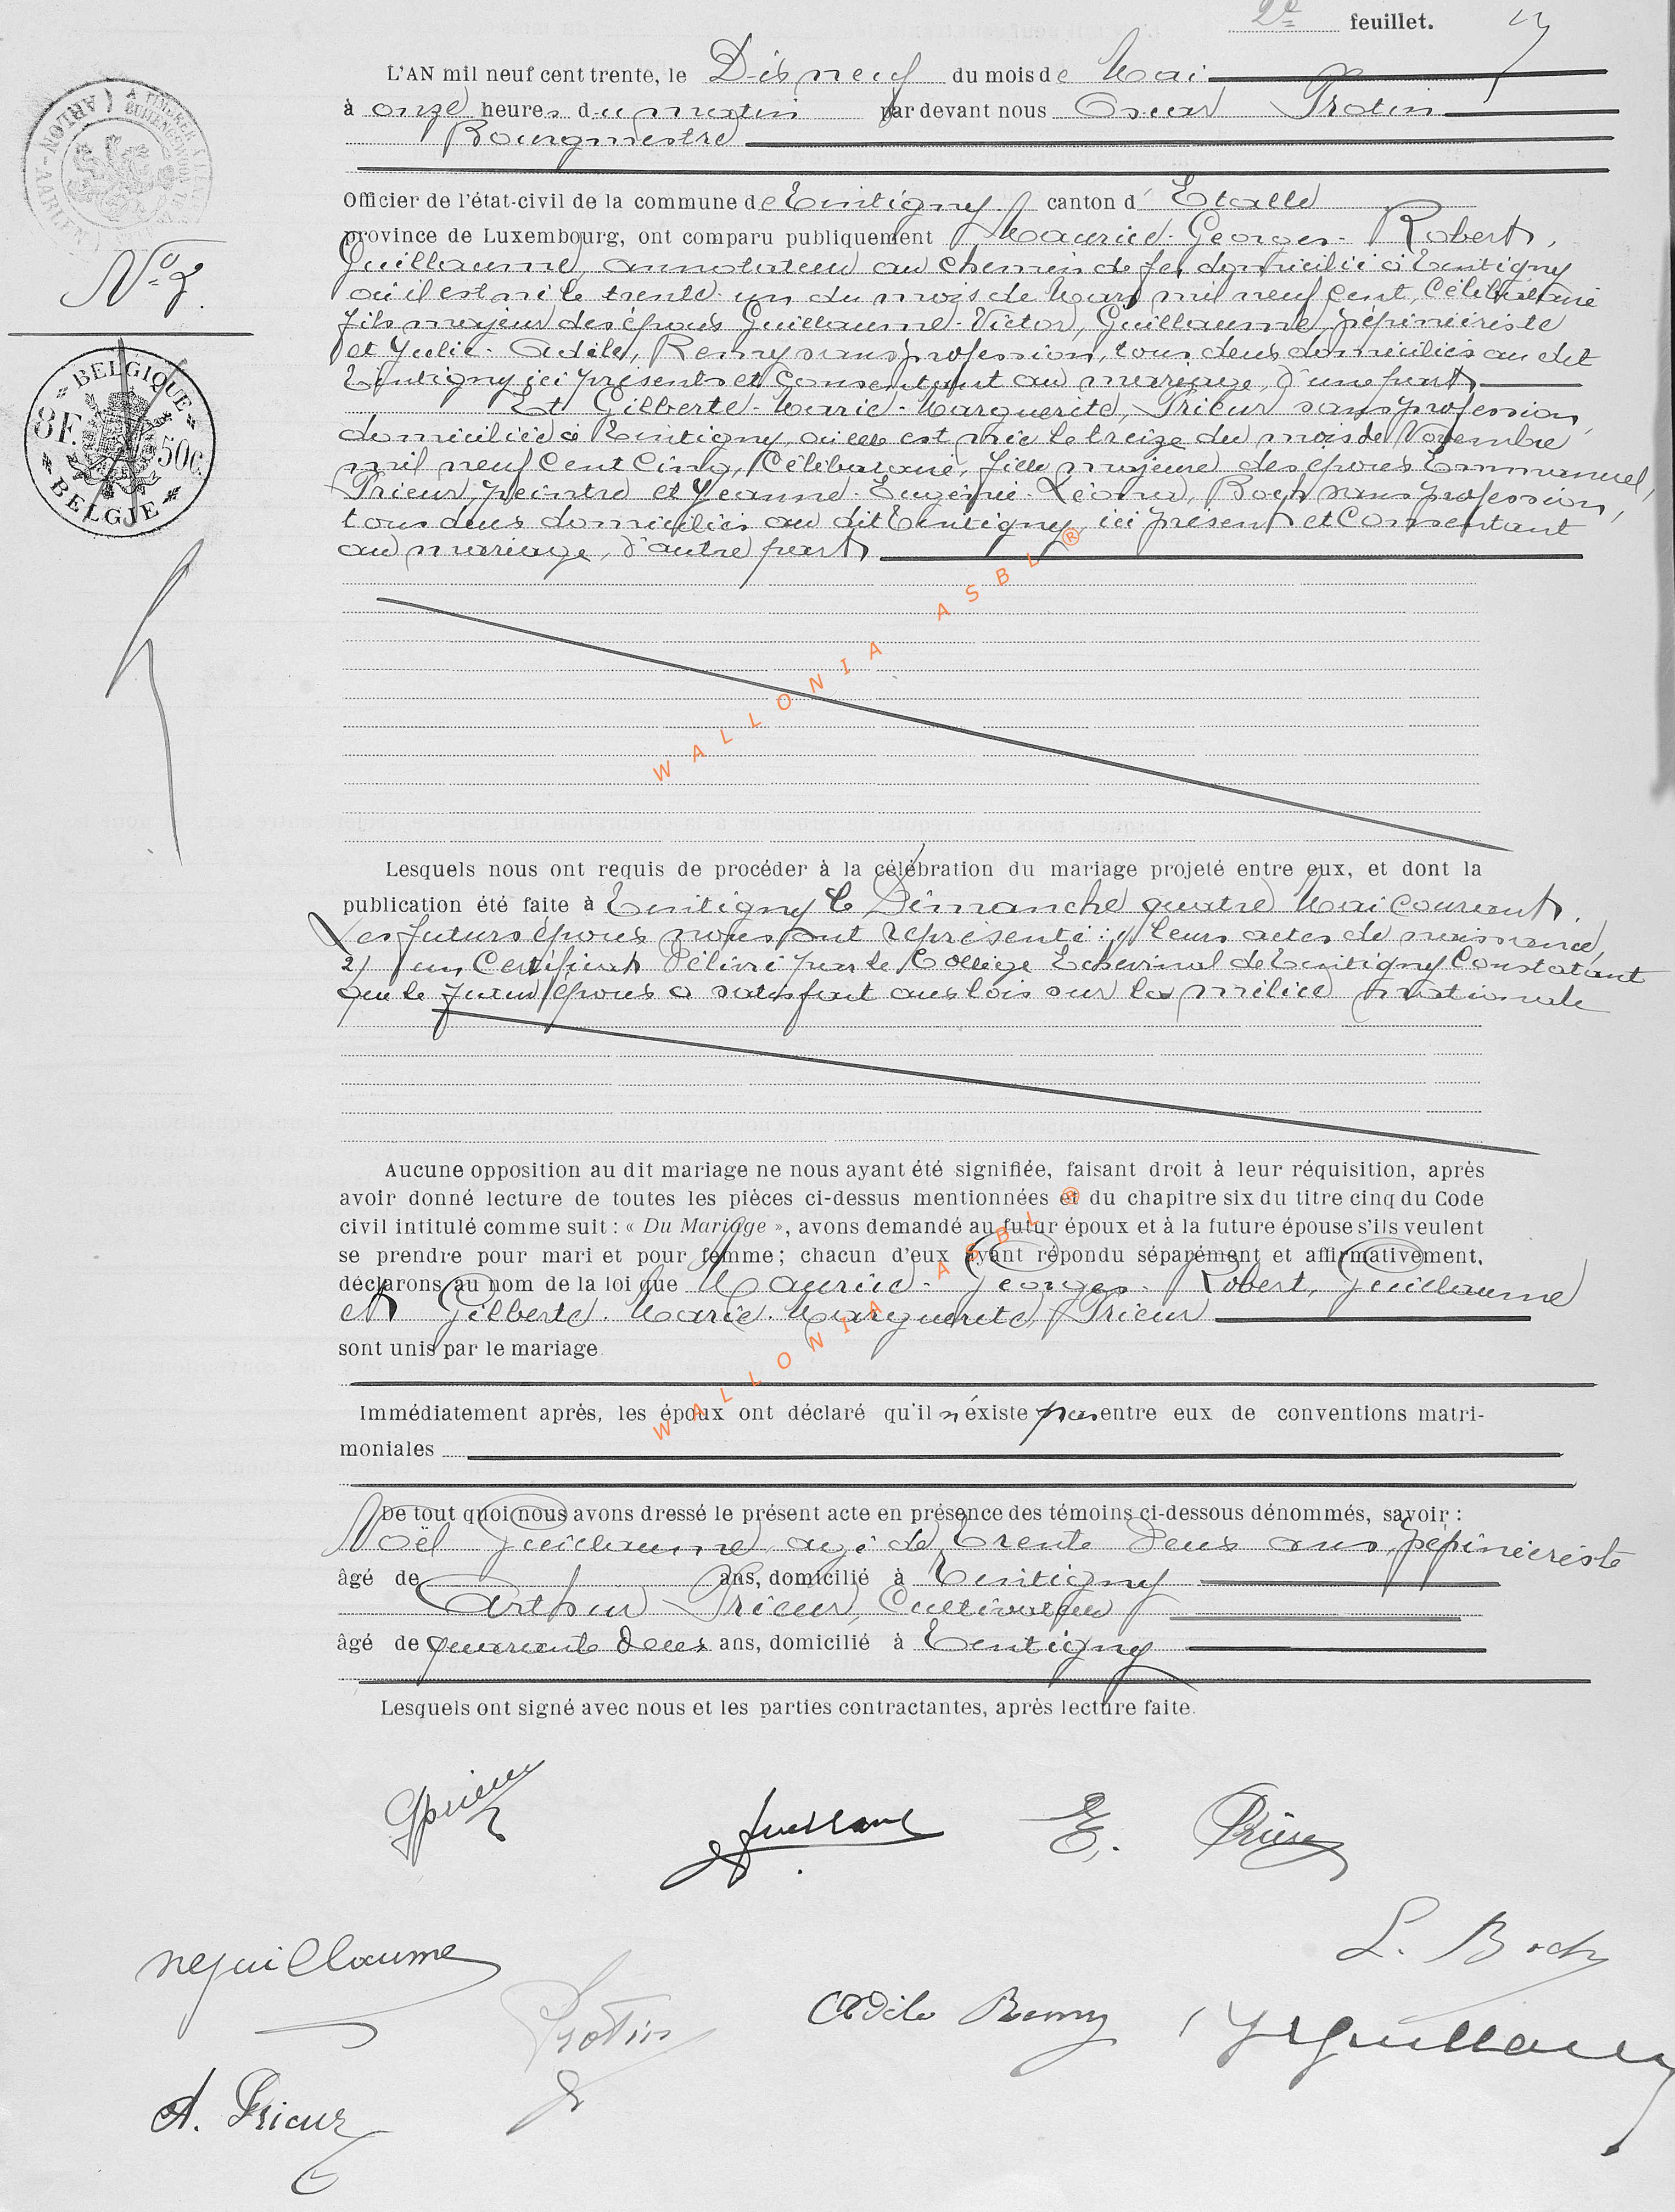 2e feuillet.
L'AN mil neuf cent trente, le Dix neuf du mois de Mai
à onze heures du matin par devant nous Oscar Protin
Bourgmestre
Officier de l'état-civil de la commune de Tintigny canton d' Etalle
province de Luxembourg, ont comparu publiquement Maurice-Georges-Robert,
Guillaume, annotateur au chemin de fer domicilié à Tintigny
où il est né le trente-un du mois de Mars mil neuf cent, Célibataire
fils majeur des époux Guillaume-Victor, Guillaume, pépiniériste
et Julie-Adèle, Remy sans profession, tous deux domiciliés au dit
Tintigny ici présents et Consentant au mariage, d'une part
Et Gilberte-Marie-Marguerite, Prieur sans profession,
domiciliée à Tintigny, où elle est née le treize du mois de Novembre
mil neuf cent cinq, Célibataire, fille majeure des époux Emmanuel,
Prieur, peintre et Jeanne-Eugénie-Léonie, Boch sans profession,
tous deux domiciliés au dit Tintigny, ici présent et Consentant
au mariage, d'autre part
Lesquels nous ont requis de procéder à la célébration du mariage projeté entre eux, et dont la
publication été faite à Tintigny le Dimanche quatre Mai courant.
Les futurs époux nous ont représenté : 1/ leurs actes de naissance,
2/ un Certificat Délivré par le Collège Echevinal de Tintigny Constatant
que le futur époux a satisfait aux lois sur la milice nationale
Aucune opposition au dit mariage ne nous ayant été signifiée, faisant droit à leur réquisition, après
avoir donné lecture de toutes les pièces ci-dessus mentionnées et du chapitre six du titre cinq du Code
civil intitulé comme suit : « Du Mariage », avons demandé au futur époux et à la future épouse s'ils veulent
se prendre pour mari et pour femme; chacun d'eux ayant répondu séparément et affirmativement,
déclarons au nom de la loi que Maurice-Georges-Robert, Guillaume
et Gilberte-Marie-Marguerite, Prieur
sont unis par le mariage.
Immédiatement après, les époux ont déclaré qu'il n'existe pas entre eux de conventions matri-
moniales
De tout quoi nous avons dressé le présent acte en présence des témoins ci-dessous dénommés, savoir :
Noël Guillaume, agé de trente Deux ans, pépiniériste
âgé de ans, domicilié à Tintigny
Arthur Prieur, Cultivateur
âgé de quarante deux ans, domicilié à Tintigny
Lesquels ont signé avec nous et les parties contractantes, après lecture faite.
GPrieur
Guillaume
E. Prieur
L. Boch
NGuillaume
Protin
Adèle Remy
Guillaume
A. Prieur
BELGIQUE
8F. 50c.
BELGIE
WALLONIA ASBL ®
WALLONIA ASBL ®